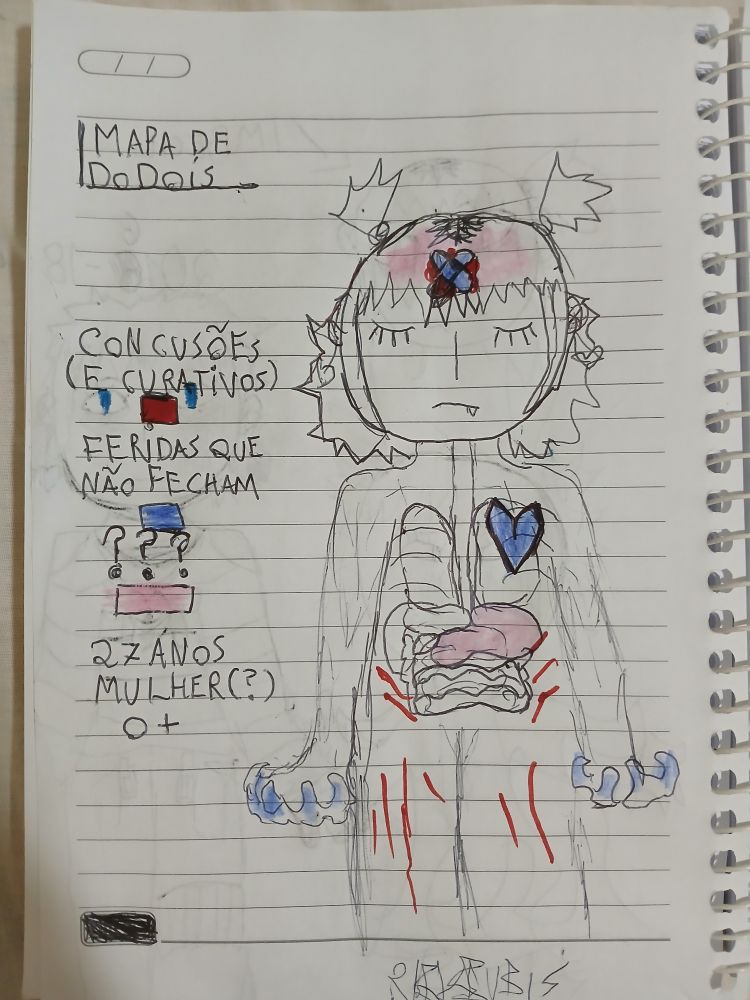 MAPA DE
DODÓIS
CONCUSÕES
(E CURATIVOS)
FERIDAS QUE
NÃO FECHAM
? ? ?
27 ANOS
MULHER(?)
O+